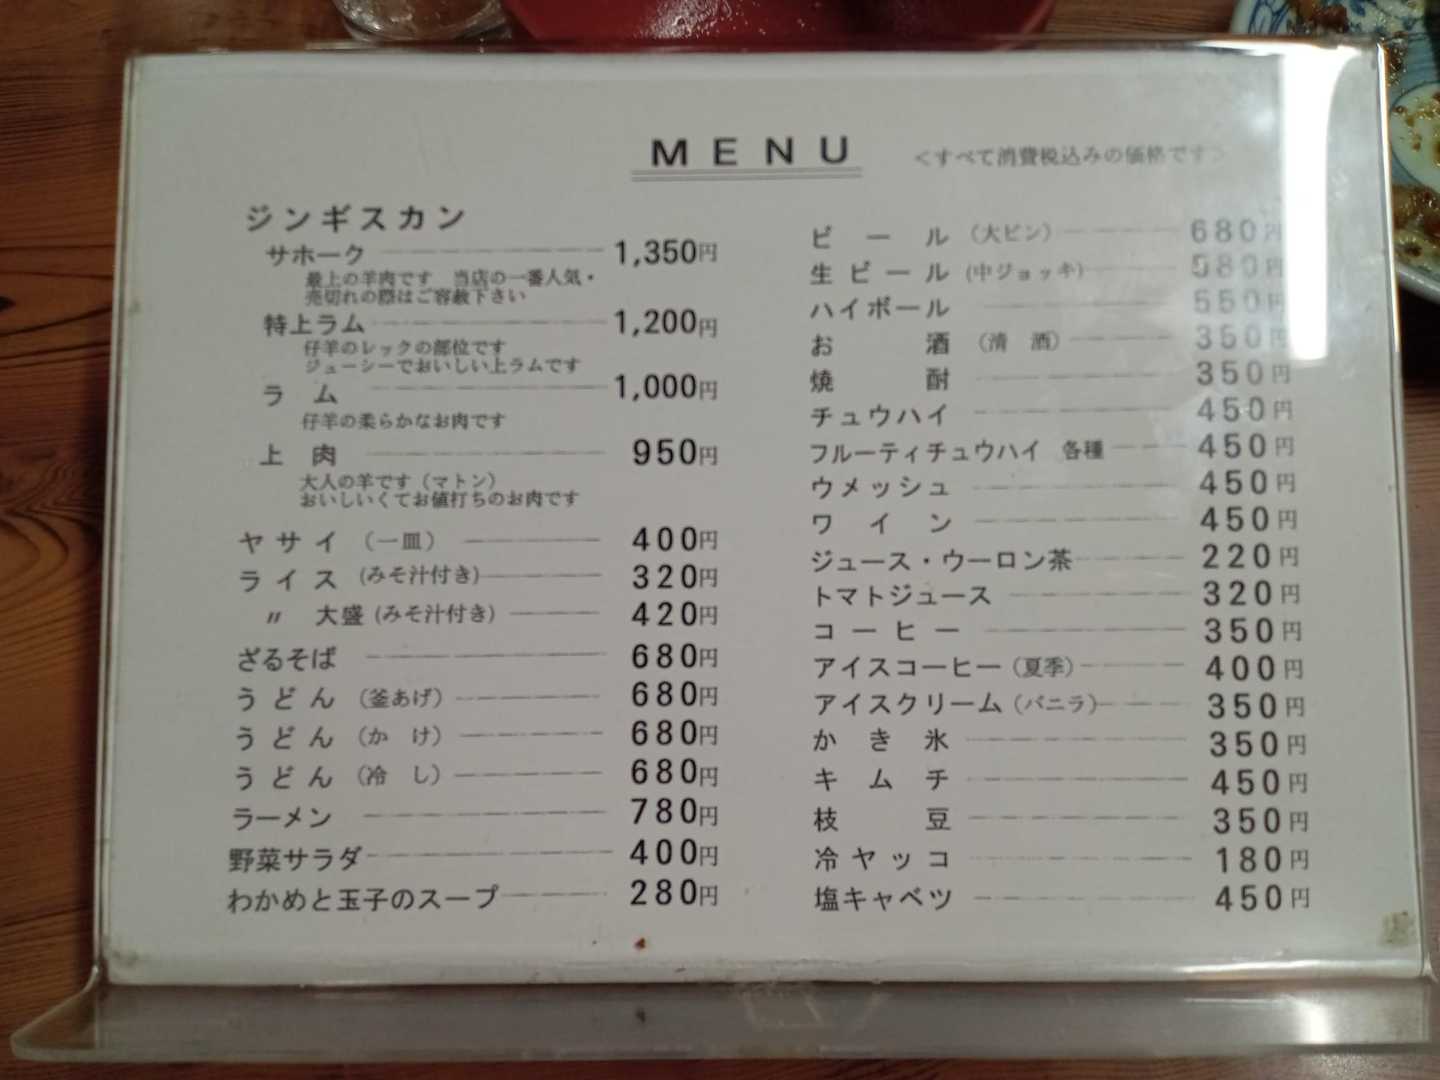 MENU
＜すべて消費税込みの価格です＞
ジンギスカン
サホーク 1,350円
最上の羊肉です 当店の一番人気・
売切れの際はご容赦下さい
特上ラム 1,200円
仔羊のレックの部位です
ジューシーでおいしい上ラムです
ラム 1,000円
仔羊の柔らかなお肉です
上肉 950円
大人の羊です（マトン）
おいしいくてお値打ちのお肉です
ヤサイ（一皿） 400円
ライス（みそ汁付き） 320円
〃 大盛（みそ汁付き） 420円
ざるそば 680円
うどん（釜あげ） 680円
うどん（かけ） 680円
うどん（冷し） 680円
ラーメン 780円
野菜サラダ 400円
わかめと玉子のスープ 280円
ビール（大ビン） 680円
生ビール（中ジョッキ） 580円
ハイボール 550円
お酒（清酒） 350円
焼酎 350円
チュウハイ 450円
フルーティチュウハイ 各種 450円
ウメッシュ 450円
ワイン 450円
ジュース・ウーロン茶 220円
トマトジュース 320円
コーヒー 350円
アイスコーヒー（夏季） 400円
アイスクリーム（バニラ） 350円
かき氷 350円
キムチ 450円
枝豆 350円
冷ヤッコ 180円
塩キャベツ 450円